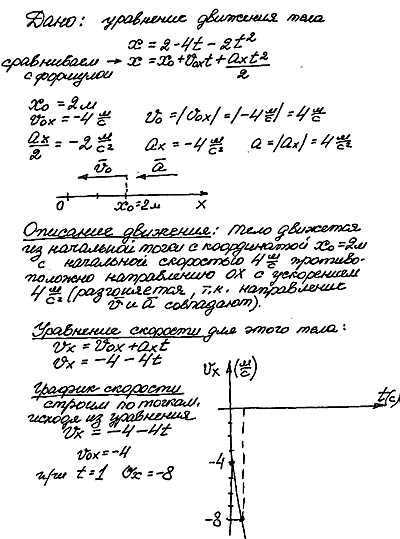 Дано: уравнение движения тела
x = 2 - 4t - 2t²
сравниваем → x = x₀ + v₀ₓt + aₓt²/2
с формулой
x₀ = 2 м
v₀ₓ = -4 м/с v₀ = |v₀ₓ| = |-4 м/с| = 4 м/с
aₓ/2 = -2 м/с² aₓ = -4 м/с² a = |aₓ| = 4 м/с²
v̄₀ ā
0 x₀=2м x
Описание движения: тело движется
из начальной точки с координатой x₀=2м
с начальной скоростью 4 м/с противо-
положно направлению OX с ускорением
4 м/с² (разгоняется, т.к. направление
v̄ и ā совпадают).
Уравнение скорости для этого тела:
vₓ = v₀ₓ + aₓt
vₓ = -4 - 4t
График скорости
строим по точкам,
исходя из уравнения
vₓ = -4 - 4t
v₀ₓ = -4
при t = 1 vₓ = -8
vₓ (м/с)
t(с)
-4
-8